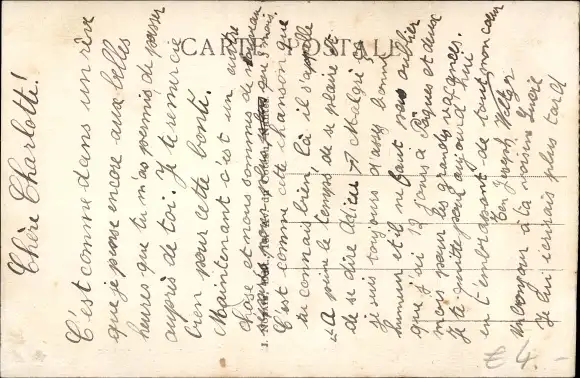 CARTE POSTALE
Chère Charlotte!
C'est comme dans un rêve
que je pense encore aux belles
heures que tu m'as permis de passer
auprès de toi. Je te remercie
bien pour cette bonté.
Maintenant c'est un autre
chose et nous sommes de nouveau
C'est comme cette chanson que
tu connais bien. Là il s'appelle
"A peine le temps de se plaire et
de se dire Adieu" Malgré ça
je suis toujours d'assez bonne
humeur et il ne faut pas oublier
que j'ai 12 jours à Pâques et deux
mois pour les grandes vacances.
Je te quitte pour aujourd'hui
en t'embrassant de tout mon cœur
Ton Joseph
un bonjour à la voisine
Je lui écrirais plus tard
€ 4.-